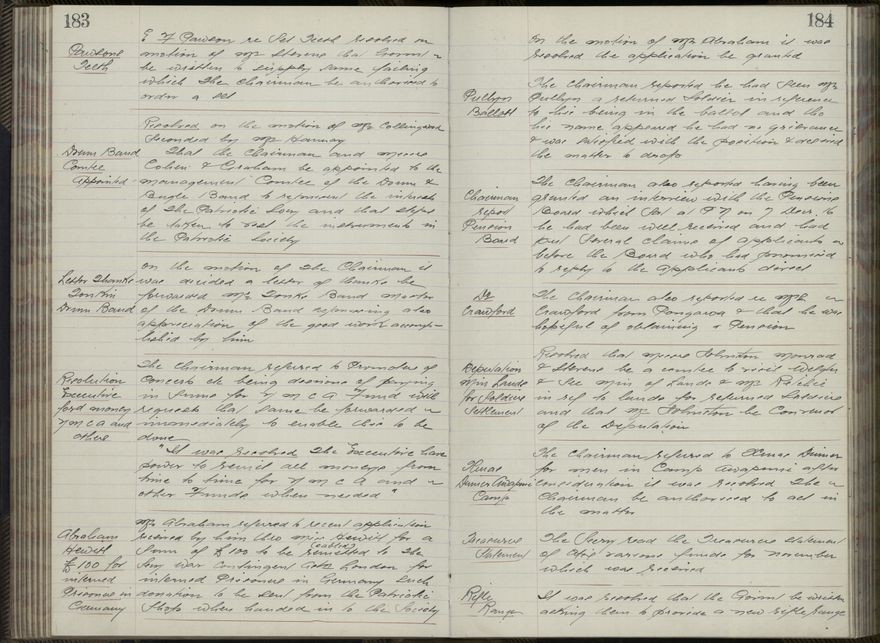 183
Pawsons
Teeth
F Pawson re Set Teeth resolved on
motion of Mr Stevens that
be written to supply same failing
which the Chairman be authorised to
order a set
Resolved on the motion of Mr Collingwood
Seconded by Mr Hannay
Drum Band
Comtee
Appointed
That the Chairman and Messrs
Cohen & Graham be appointed to the
management Comtee of the Drum &
Bugle Band to represent the interests
of the Patriotic Socy and that steps
be taken to vest the instruments in
the Patriotic Society
Letter Thanks
Drum Band
On the motion of the Chairman it
was decided a letter of thanks be
forwarded Mr Band master
of the Drum Band expressing also
appreciation of the good work accomp-
lished by him
Resolution
Executive
ford money
YMCA and
others
The Chairman referred to Promoters of
Concerts etc being desirous of paying
in sums for YMCA Fund with
request that same be forwarded
immediately to enable this to be
done
"It was resolved the Executive have
power to remit all moneys from
time to time for YMCA and
other Funds when needed"
Abraham
Hewitt
£100 for
interned
Prisoners in
Germany
Mr Abraham referred to recent application
received by him thro Hewitt for a
Sum of £100 to be remitted (cabled) to the
War Contingent London for
interned Prisoners in Germany such
donation to be sent from the Patriotic
Shop when handed in to the Society
184
On the motion of Mr Abraham it was
resolved the application be granted
Ballott
The Chairman reported he had seen Mr
a returned Soldier in reference
to his being in the ballot and tho
his name appeared he had no grievance
& was satisfied with the position & desired
the matter to drop
Chairman
report
Pension
Board
The Chairman also reported having been
granted an interview with the Pensions
Board which sat at P N on 7 Decr.
he had been well received and had
put several claims of applicants
before the Board who had promised
to reply to the applicants direct
Crawford
The Chairman also reported re Mrs
Crawford from Pongaroa & that he was
hopeful of obtaining a Pension
Deputation
Min Lands
for Soldiers
Settlement
Resolved that Messrs Johnston Monrad
& Stevens be a comtee to visit Welgtn
& See Min of Lands & Mr Ritchie
in ref to lands for returned Soldiers
and that Mr Johnston be Convenor
of the Deputation
Xmas
Dinner Awapuni
Camp
The Chairman referred to Xmas Dinner
for men in Camp Awapuni after
consideration it was resolved the
Chairman be authorised to act in
the matter
Treasurers
Statement
The Secy read the Treasurers statement
of the various funds for November
which was received
Rifle
Range
It was resolved that the be written
asking them to provide a new rifle range